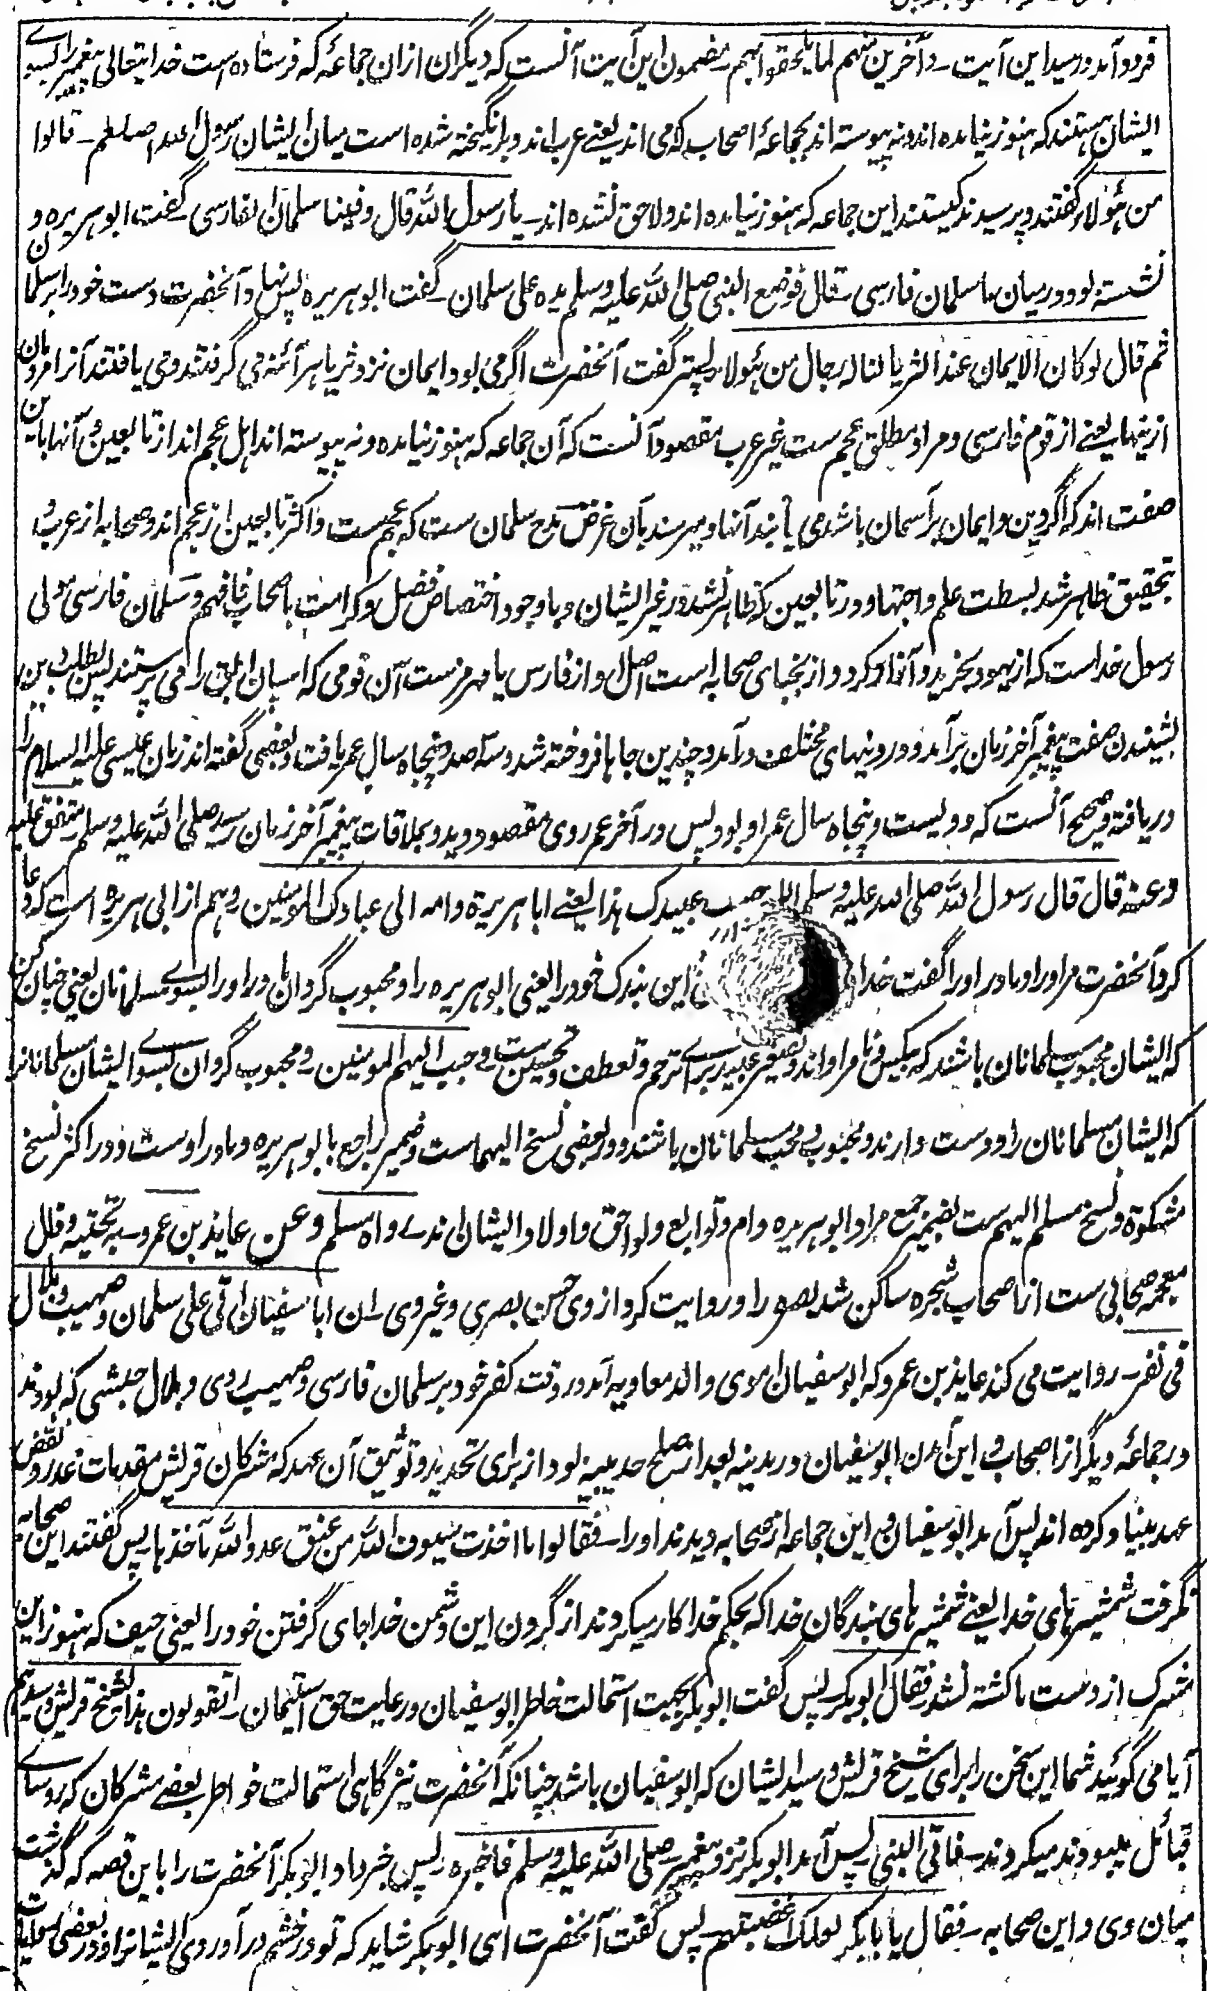 فرود آمد و رسید این آیت ـ وآخرین منهم لما یلحقوا بهم ـ مضمون این آیت آنست که دیگران ازان جماعه که فرستاده است خدا تعالی پیغمبر را بسوے
ایشان هستند که هنوز نیامده اند و نه پیوسته اند بجماعۀ اصحاب که امی اند یعنے عرب اند و برانگیخته شده است میان ایشان رسول الله صلعم ـ قالوا
من هؤلاء گفتند و پرسیدند کیستند این جماعه که هنوز نیامده اند و لاحق نشده اند ـ یا رسول الله قال وفینا سلمان الفارسی ـ گفت ابو هریره و
نشسته بود در میان ما سلمان فارسی ـ قال فوضع النبی صلی الله علیه وسلم یده علی سلمان ـ گفت ابو هریره پس نهاد آنحضرت دست خود را بر سلمان
ثم قال لو کان الایمان عند الثریا لناله رجال من هؤلاء ـ پستر گفت آنحضرت اگر می بود ایمان نزد ثریا هر آئنه می گرفتند و می یافتند آنرا مردمان
ازینها یعنے از قوم فارسی و مراد مطلق عجم ست غیر عرب مقصود آنست که آن جماعه که هنوز نیامده و نه پیوسته اند اهل عجم اند از تابعین و آنها باین
صفت اند که اگر دین و ایمان بر آسمان باشد می یابند آنها و میرسند بآن غرض مدح سلمان ست که عجم ست و اکثر تابعین از عجم اند و صحابه از عرب و
تحقیق ظاهر شد بسطت علم و اجتهاد در تابعین که ظاهر نشد در غیر ایشان و با وجود اختصاص فضل و کرامت باصحاب فافهم و سلمان فارسی مولی
رسول خداست که از یهود بخرید و آزاد کرد و از نجبای صحابه است اصل او از فارس یا هرمزست آن قومی که اسپان ابلق را می پرستند پس بطلب دین
بشنیدن صفت پیغمبر آخر زمان بر آمد و در دینهای مختلف در آمد و چندین جاها فروخته شد و سه صد و پنجاه سال عمر یافت و بعضی گفته اند زمان عیسی علیه السلام را
دریافته و صحیح آنست که دویست و پنجاه سال عمر او بود و پس در آخر عمر روی مقصود دید و بملاقات پیغمبر آخر زمان رسید صلی الله علیه وسلم متفق علیه
وعنه قال قال رسول الله صلی الله علیه وسلم اللهم حبب عبیدک هذا یعنے ابا هریرة وامه الی عبادک المومنین و هم از ابی هریره است که دعا
کرد آنحضرت مر او را و مادر او را گفت خدا این بندک خود را یعنی ابو هریره را و محبوب گردان مادر او را بسوے مسلمانان یعنی چنان کن
که ایشان محبوب مسلمانان باشند که بیکس و نامراد اند و تصغیر عبید براے ترحم و تعطف و تحسین ست ـ وحبب الیهم المومنین ـ و محبوب گردان بسوے ایشان مسلمانانرا
که ایشان مسلمانان را دوست دارند و محبوب و محب مسلمانان باشند و در بعضی نسخ الیهما ست و ضمیر راجع بابو هریره و مادر اوست و در اکثر نسخ
مشکوة و نسخ مسلم الیهم ست بضمیر جمع مراد ابو هریره و ام و توابع و لواحق و اولاد ایشان اند ـ رواه مسلم وعن عاید بن عمرو ـ به تحتیه و ذال
معجمه صحابی ست از اصحاب شجره ساکن شد بصره را و روایت کرد از وی حسن بصری و غیر وی ـ ان ابا سفیان اتی علی سلمان و صهیب و بلال
فی نفر ـ روایت می کند عایذ بن عمرو که ابو سفیان اموی والد معاویه آمد در وقت کفر خود بر سلمان فارسی و صهیب رومی و بلال حبشی که بودند
در جماعۀ دیگر از اصحاب و این آمدن ابو سفیان در مدینه بعد از صلح حدیبیه بود از برای تجدید و توثیق آن عهد که مشرکان قریش مقدمات غدر و نقض
عهد بنیاد کرده اند پس آمد ابو سفیان و این جماعه از صحابه دیدند او را ـ فقالوا ما اخذت سیوف الله من عنق عدو الله ماخذها پس گفتند این صحابه
نگرفت شمشیر های خدا یعنے شمشیر های بندگان خدا که بحکم خدا کار میکردند از گردن این دشمن خدا جای گرفتن خود را یعنی حیف که هنوز این
مشرک از دست ما کشته نشد ـ فقال ابو بکر ـ پس گفت ابو بکر بجهت استمالت خاطر ابو سفیان و رعایت حق استیمان ـ اتقولون هذا لشیخ قریش و سیدهم
آیا می گوئید شما این سخن را برای شیخ قریش و سید ایشان که ابو سفیان باشد چنانکه آنحضرت نیز گاهی استمالت خواطر بعضے مشرکان که روسای
قبائل بودند میکردند ـ فاتی النبی ـ پس آمد ابو بکر نزد پیغمبر ـ صلی الله علیه وسلم فاخبره ـ پس خبر داد ابو بکر آنحضرت را باین قصه که گذشت
میان وی و این صحابه ـ فقال یا ابا بکر لعلک اغضبتهم ـ پس گفت آنحضرت ای ابو بکر شاید که تو در خشم در آوردی ایشانرا و در بعضی